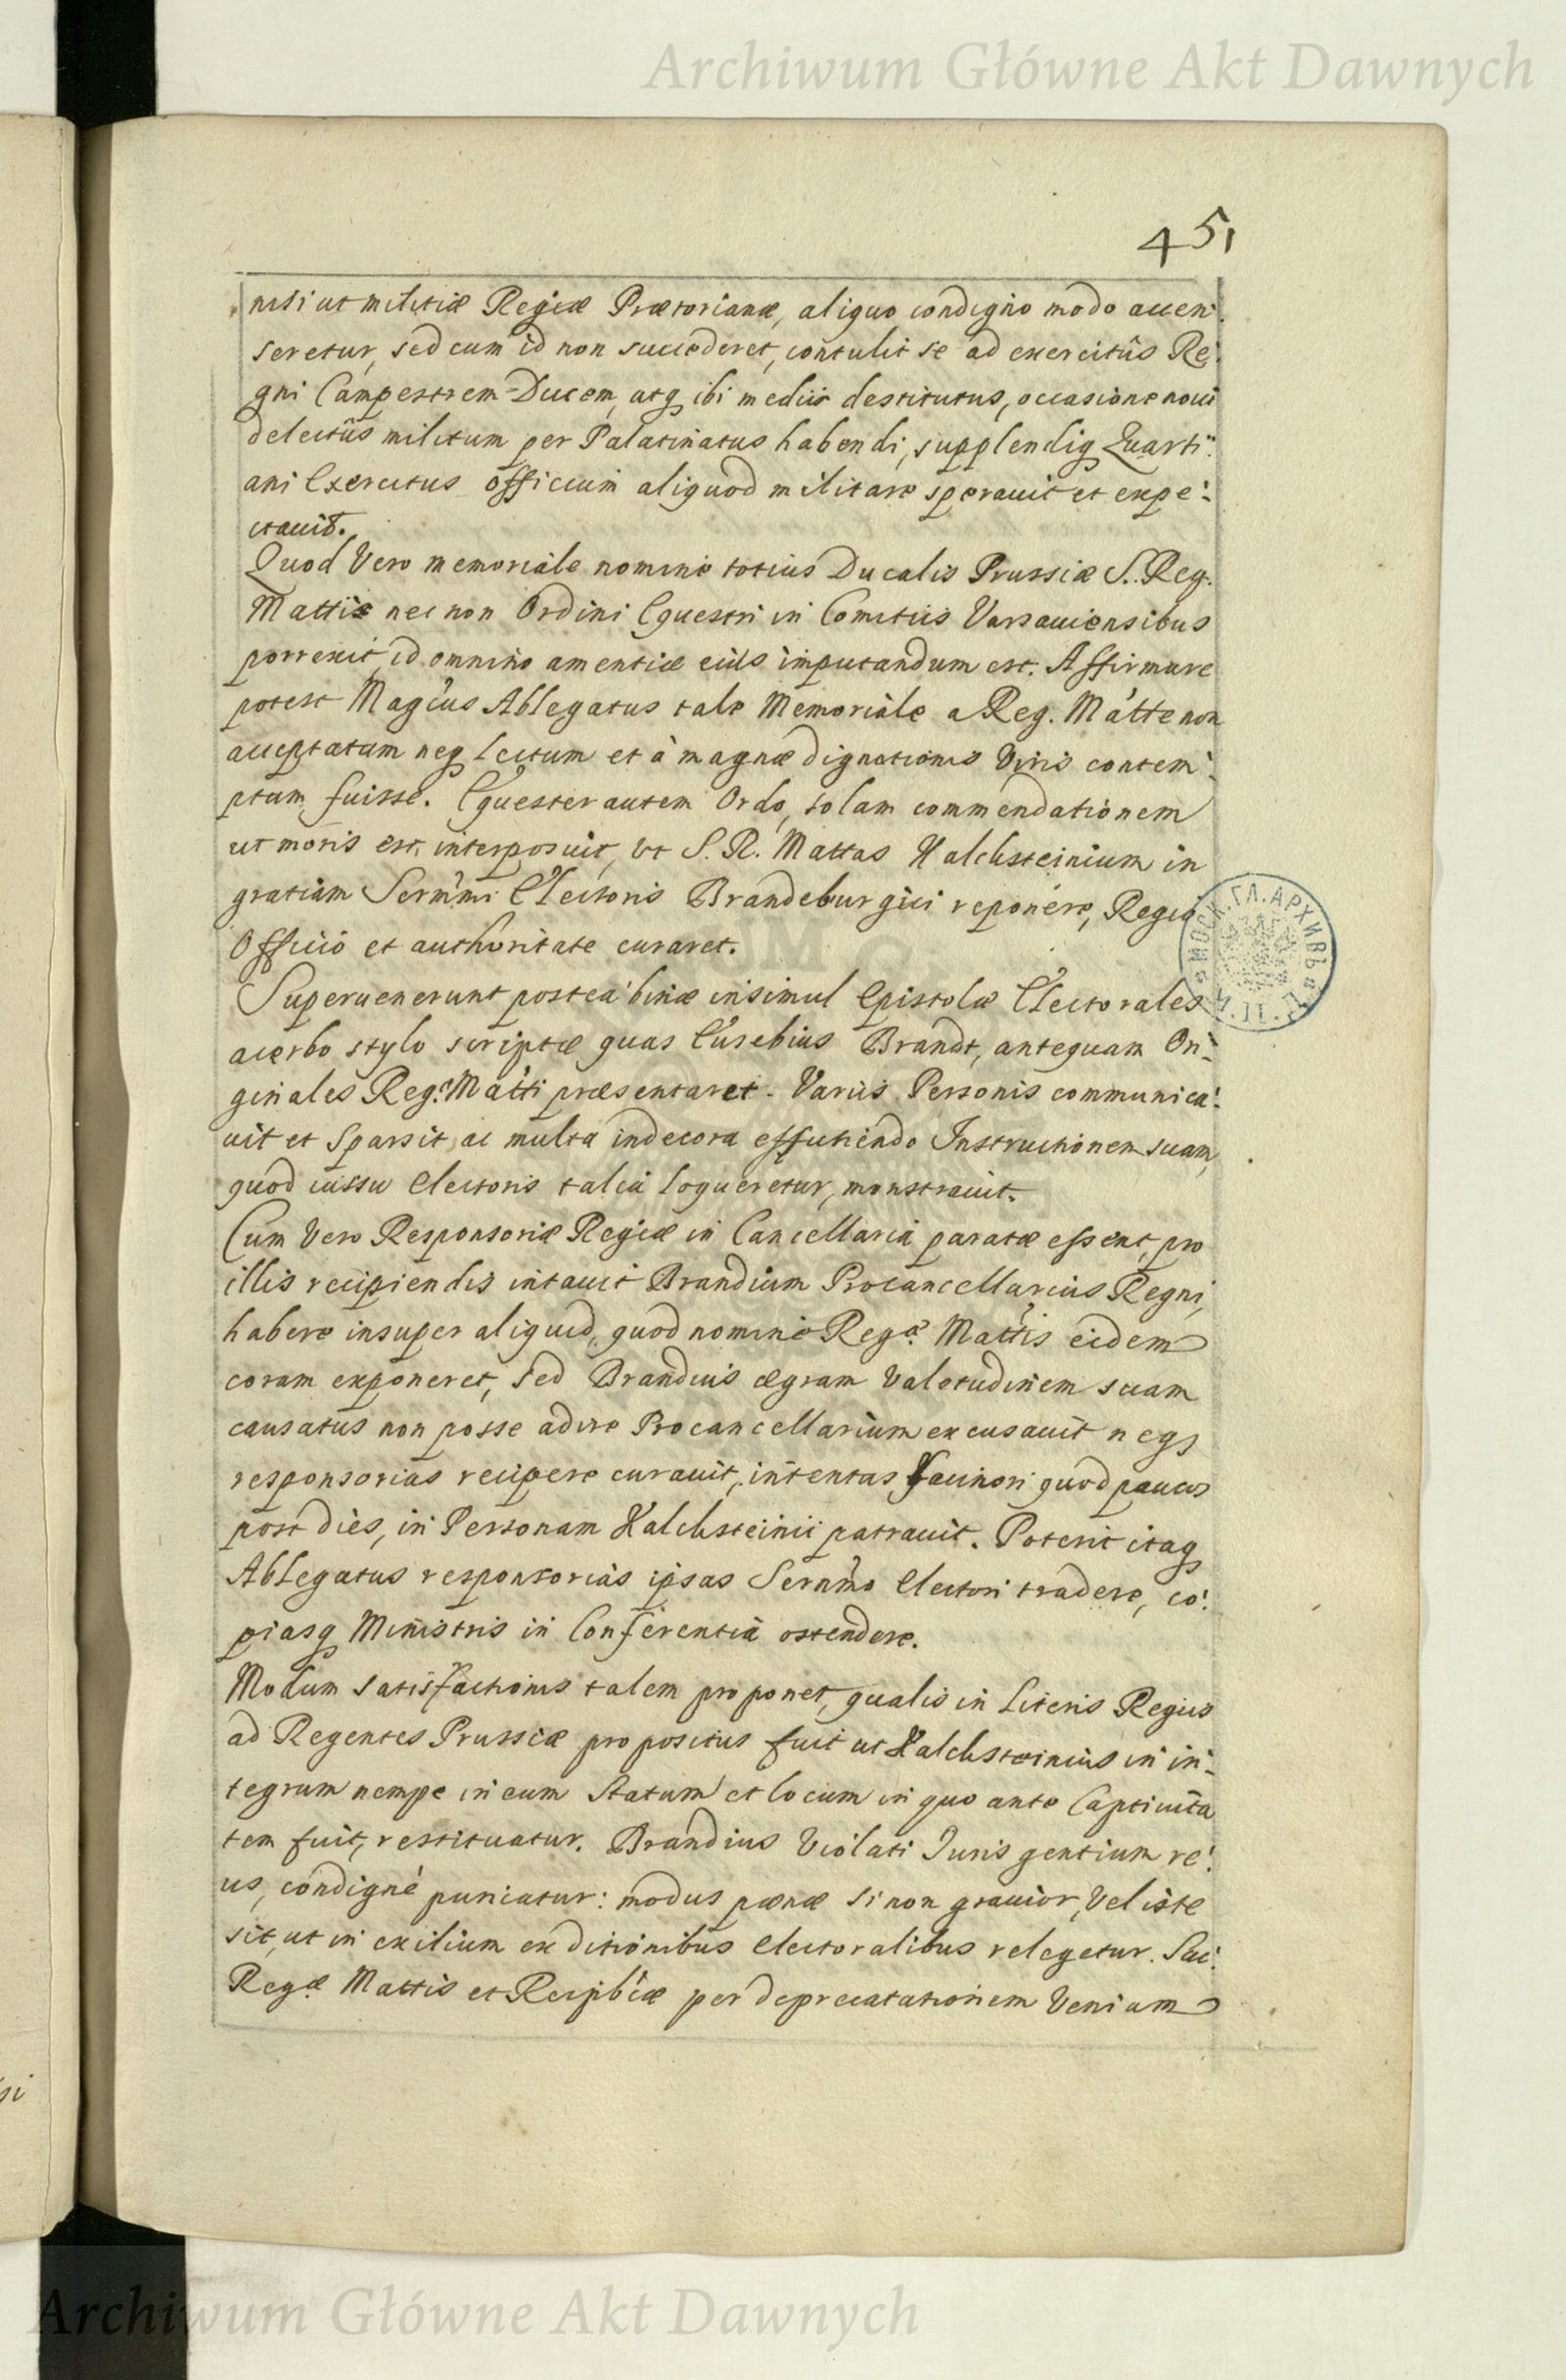 Archiwum Główne Akt Dawnych
451
nisi ut militiæ Regiæ Prætorianæ, aliquo condigno modo accen:
seretur, sed cum id non succederet, contulit se ad exercitûs Re:
gni Campestrem Ducem, atq ibi mediis destitutus, occasione noui
delectûs militum per Palatinatus habendi, supplendiq Quarti:
ani Exercitus officium aliquod militare sperauit et expe:
ctauit.
Quod Vero memoriale nomine totius Ducalis Prussiæ S. Reg.
Matti nec non Ordini Equestri in Comitiis Varsauiensibus
porrexit, id omnino amentiæ eius imputandum est. Affirmare
potest Magcus Ablegatus tale Memoriale a Reg. Matte non
acceptatum neq lectum et à magnæ dignationis Viris contem:
ptum fuisse. Equester autem Ordo, solam commendationem
ut moris est, interposuit, vt S. R. Mattas Kalchsteinium in
gratiam Sermi Electoris Brandeburgici reponere, Regio
Officio et authoritate curaret.
Superuenerunt postea binæ insimul Epistolæ Electorales
acerbo stylo scriptæ quas Eusebius Brandt, antequam Ori:
ginales Reg. Matti præsentaret. Variis Personis communica:
uit et sparsit, ac multa indecora effutiendo Instructionem suam,
quod iussu Electoris talia loqueretur, monstrauit.
Cum Vero Responsoriæ Regiæ in Cancellaria paratæ essent, pro
illis recipiendis inuitauit Brandium Procancellarius Regni,
habere insuper aliquid, quod nomine Regæ Mattis eidem
coram exponeret, sed Brandius ægram Valetudinem suam
causatus non posse adire Procancellarium excusauit neqs
responsorias recipere curauit, intentus facinori quod paucos
post dies, in Personam Kalchsteinii patrauit. Poterit itaq
Ablegatus responsorias ipsas Sermo Electori tradere, co:
piasq Ministris in Conferentia ostendere.
Modum satisfactionis talem proponet, qualis in Literis Regiis
ad Regentes Prussiæ propositus fuit ut Kalchsteinius in in:
tegrum nempe in eum Statum et locum in quo ante Captiuita
tem fuit, restituatur. Brandius Violati Juris gentium re:
us, condignè puniatur: modus pænæ si non grauior, Vel iste
sit, ut in exilium ex ditionibus Electoralibus relegetur. Sac:
Regæ Mattis et Reipbcæ per deprecatationem Veniam
МОСК. ГЛ. АРХИВЪ
Archiwum Główne Akt Dawnych